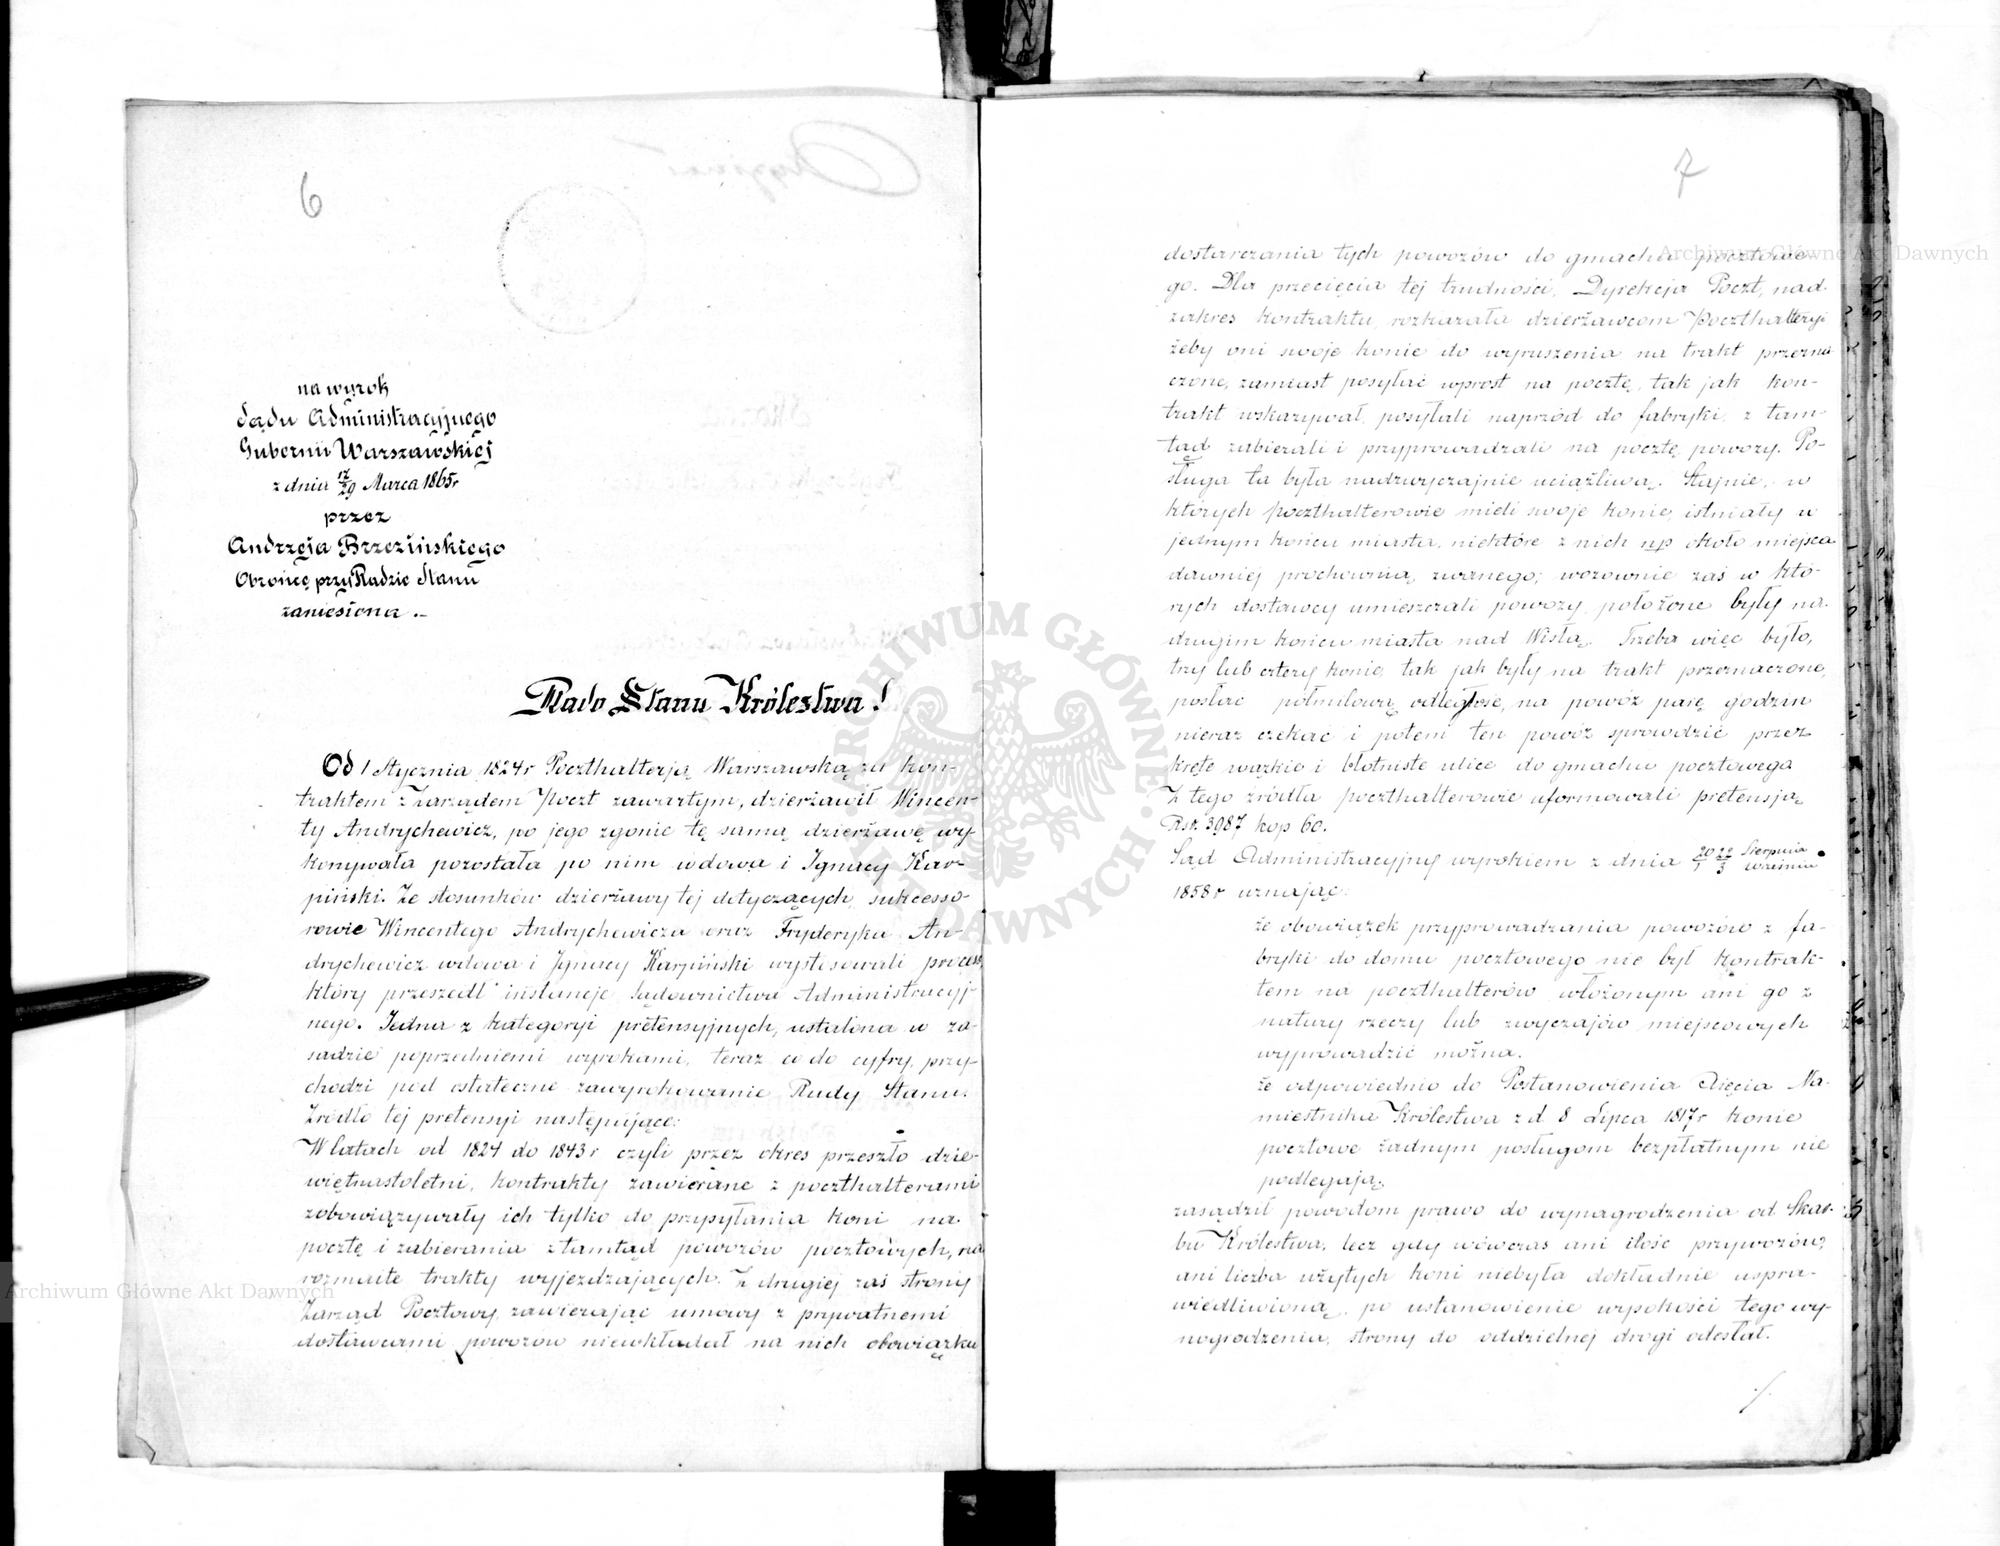 6
na wyrok
Sądu Administracyjnego
Gubernii Warszawskiej
z dnia 17/29 Marca 1865 r
przez
Andrzeja Brzezińskiego
Obrońcę przy Radzie Stanu
zaniesiona.-
Rado Stanu Królestwa!
Od 1 Stycznia 1824 r Poczthalterją Warszawską za kon-
traktem z Zarządem Poczt zawartym, dzierżawił Wincen-
ty Andrychewicz, po jego zgonie tę samą dzierżawę wy-
konywała pozostała po nim wdowa i Ignacy Kar-
piński. Ze stosunków dzierżawy tej dotyczących, sukcesso-
rowie Wincentego Andrychewicza oraz Fryderyka An-
drychewicz wdowa i Ignacy Karpiński wystosowali process,
który przeszedł instancje Sądownictwa Administracyj-
nego. Jedna z kategoryi pretensyjnych, ustalona w za-
sadzie poprzedniemi wyrokami, teraz co do cyfry, przy-
chodzi pod ostateczne zawyrokowanie Rady Stanu.
Źródło tej pretensyi następujące:
W latach od 1824 do 1843 r czyli przez okres przeszło dzie-
więtnastoletni, kontrakty zawierane z poczthalterami
zobowiązywały ich tylko do przysyłania koni na
pocztę i zabierania ztamtąd powozów pocztowych, na
rozmaite trakty wyjeżdzających. Z drugiej zaś strony
Zarząd Pocztowy, zawierając umowy z prywatnemi
dostawcami powozów niewkładał na nich obowiązku
7
dostarczania tych powozów do gmachu pocztowe-
go. Dla przecięcia tej trudności, Dyrekcja Poczt, nad
zakres kontraktu, rozkazała dzierżawcom Poczthalteryi
żeby oni swoje konie do wyruszenia na trakt przezna-
czone, zamiast posyłać wprost na pocztę, tak jak kon-
trakt wskazywał, posyłali naprzód do fabryki, z tam-
tąd zabierali i przyprowadzali na pocztę powozy. Po-
sługa ta była nadzwyczajnie uciążliwą. Stajnie, w
których poczthalterowie mieli swoje konie, istniały w
jednym końcu miasta, niektóre z nich np około miejsca
dawniej prochownią zwanego; wozownie zaś w któ-
rych dostawcy umieszczali powozy, położone były na
drugim końcu miasta nad Wisłą. Trzeba więc było,
trzy lub cztery konie, tak jak były na trakt przeznaczone,
posłać półmilową odległość, na powóz parę godzin
nieraz czekać i potem ten powóz sprowadzić przez
kręte wązkie i błotniste ulice do gmachu pocztowego
Z tego źródła poczthalterowie uformowali pretensją
Rsr. 3987 kop 60.
Sąd Administracyjny wyrokiem z dnia 20/1 22/3 Sierpnia/Września
1858 r uznając:
że obowiązek przyprowadzania powozów z fa-
bryki do domu pocztowego nie był kontrak-
tem na poczthalterów włożonym ani go z
natury rzeczy lub zwyczajów miejscowych
wyprowadzić można.
że odpowiednio do Postanowienia Xięcia Na-
miestnika Królestwa z d 8 Lipca 1817 r konie
pocztowe żadnym posługom bezpłatnym nie
podlegają,
zasądził powodom prawo do wynagrodzenia od Skar-
bu Królestwa, lecz gdy wówczas ani ilość przywozów,
ani liczba użytych koni niebyła dokładnie uspra-
wiedliwioną, po ustanowienie wysokości tego wy-
nogrodzenia, strony do oddzielnej drogi odesłał.
./.
ARCHIWUM GŁÓWNE AKT DAWNYCH
Archiwum Główne Akt Dawnych
Archiwum Główne Akt Dawnych